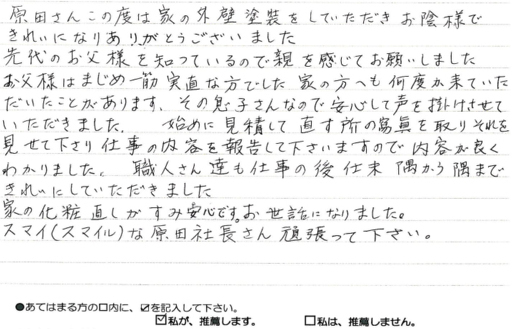 原田さんこの度は家の外壁塗装をしていただきお陰様で
きれいになりありがとうございました
先代のお父様を知っているので親を感じてお願いしました
お父様はまじめ一筋実直な方でした 家の方へも何度か来ていた
だいたことがあります、その息子さんなので安心して声を掛けさせて
いただきました。 始めに見積して直す所の寫眞を取りそれを
見せて下さり仕事の内容を報告して下さいますので内容が良く
わかりました。 職人さん達も仕事の後仕末 隅から隅まで
きれいにしていただきました
家の化粧直しがすみ安心です。お世話になりました。
スマイ(スマイル)な原田社長さん頑張って下さい。
●あてはまる方の□内に、☑を記入して下さい。
☑私が、推薦します。 □私は、推薦しません。